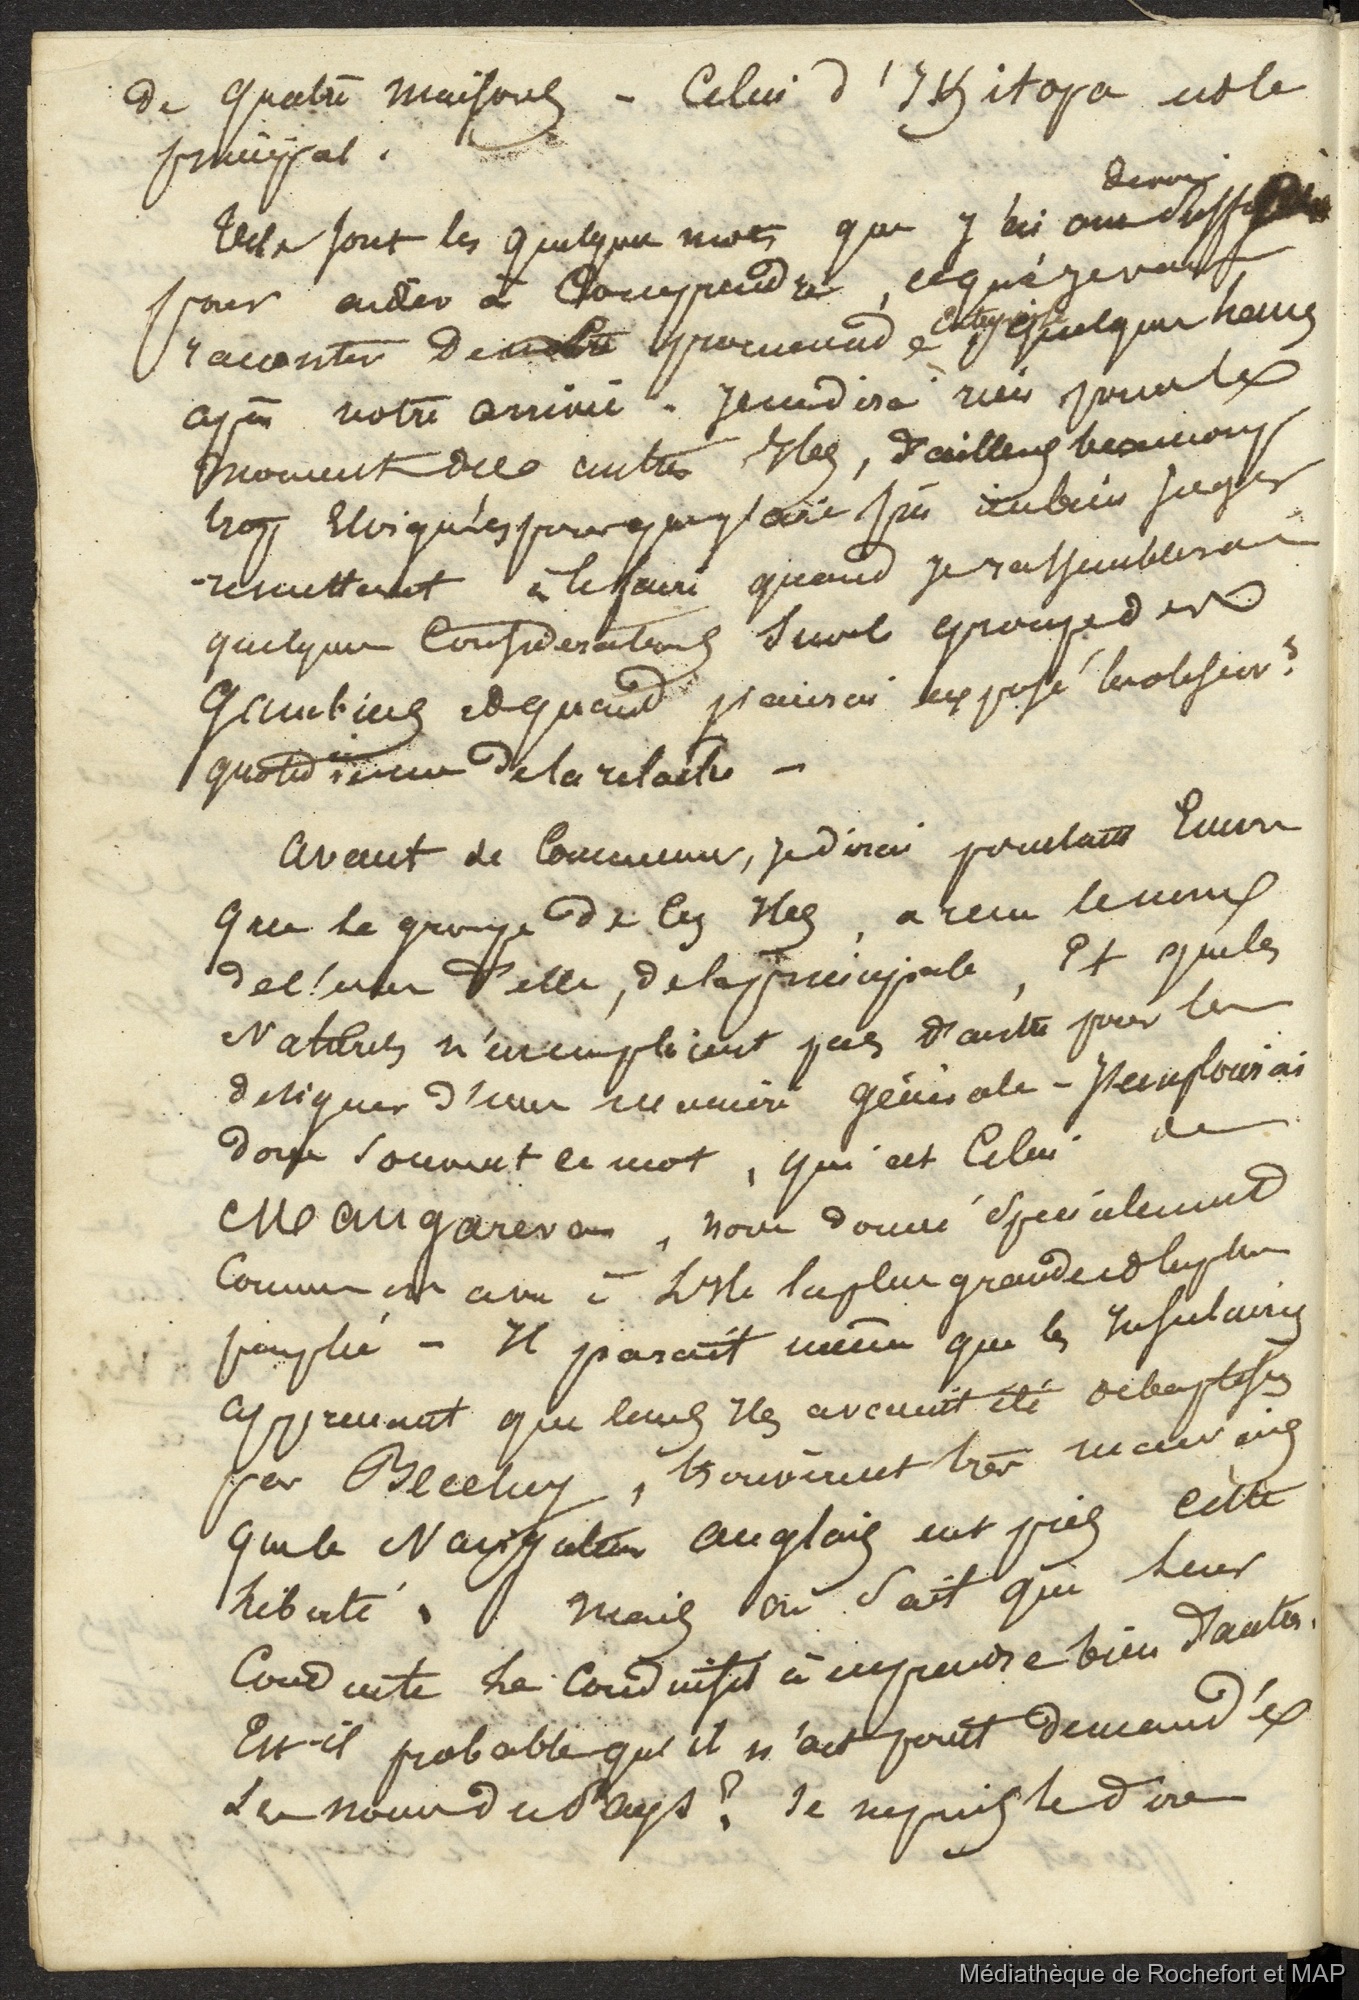 de quatre maisons - Celui d'Ikitopa est le
principal.
Tels sont les quelques mots que j'ai cru devoir
pour aider à Comprendre, ce que je vais
raconter de notre promenade entreprise quelques heures
après notre arrivée - Je ne dirai rien pour le
moment des autres Iles, d'ailleurs beaucoup
trop éloignées pour que j'aie pu en bien juger
remettant à le faire quand je rassemblerai
quelques Considerations sur le groupe des
Gambiers et quand j'aurai exposé
quotidienne de la relache -
Avant de Commencer, je dirai pourtant Encore
que le groupe de Ces Iles, a recu le nom
de l'une d'elle, de la principale, Et que les
Naturels n'en emploient pas d'autre pour les
designer d'une maniere générale - J'emploierai
donc souvent ce mot, qui est Celui de
Mangareva, nom donné spécialement
Comme on a vu à L'Ile la plus grande et la plus
peuplée - Il parait même que les Insulaires
apprenant que leurs Iles avaient été débaptisées
par Beechey, trouvèrent très mauvais
que le Navigateur anglais eut pris cette
liberté. Mais on sait que leur
Conduite le Conduisit à en prendre bien d'autres.
Est-il probable qu'il n'ait point demandé
le nom du Pays? Je ne puis le dire
Médiathèque de Rochefort et MAP